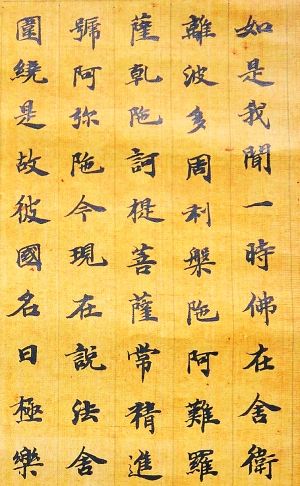 如是我聞一時佛在舍衛
離波多周利槃陁阿難羅
薩乾陁訶提菩薩常精進
號阿弥陁今現在說法舍
圍繞是故彼國名曰極樂